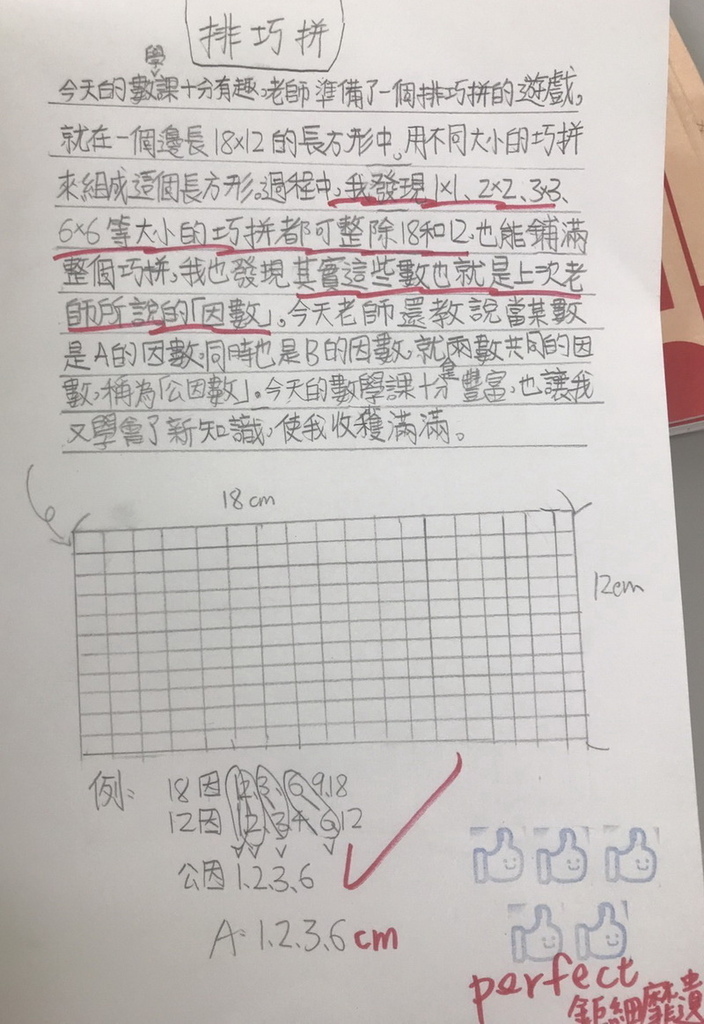 排巧拼
今天的數學課十分有趣,老師準備了一個排巧拼的遊戲,
就在一個邊長18×12的長方形中。用不同大小的巧拼
來組成這個長方形。過程中,我發現1×1、2×2、3×3、
6×6等大小的巧拼都可整除18和12,也能鋪滿
整個巧拼,我也發現其實這些數也就是上次老
師所說的「因數」。今天老師還教說當某數
是A的因數,同時也是B的因數,就兩數共同的因
數,稱為「公因數」。今天的數學課十分豐富,也讓我
又學會了新知識,使我收穫滿滿。
18cm
12cm
例:
18因 1.2.3.6.9.18
12因 1.2.3.4.6.12
公因 1.2.3.6
A:1.2.3.6 cm
perfect
鉅細靡遺